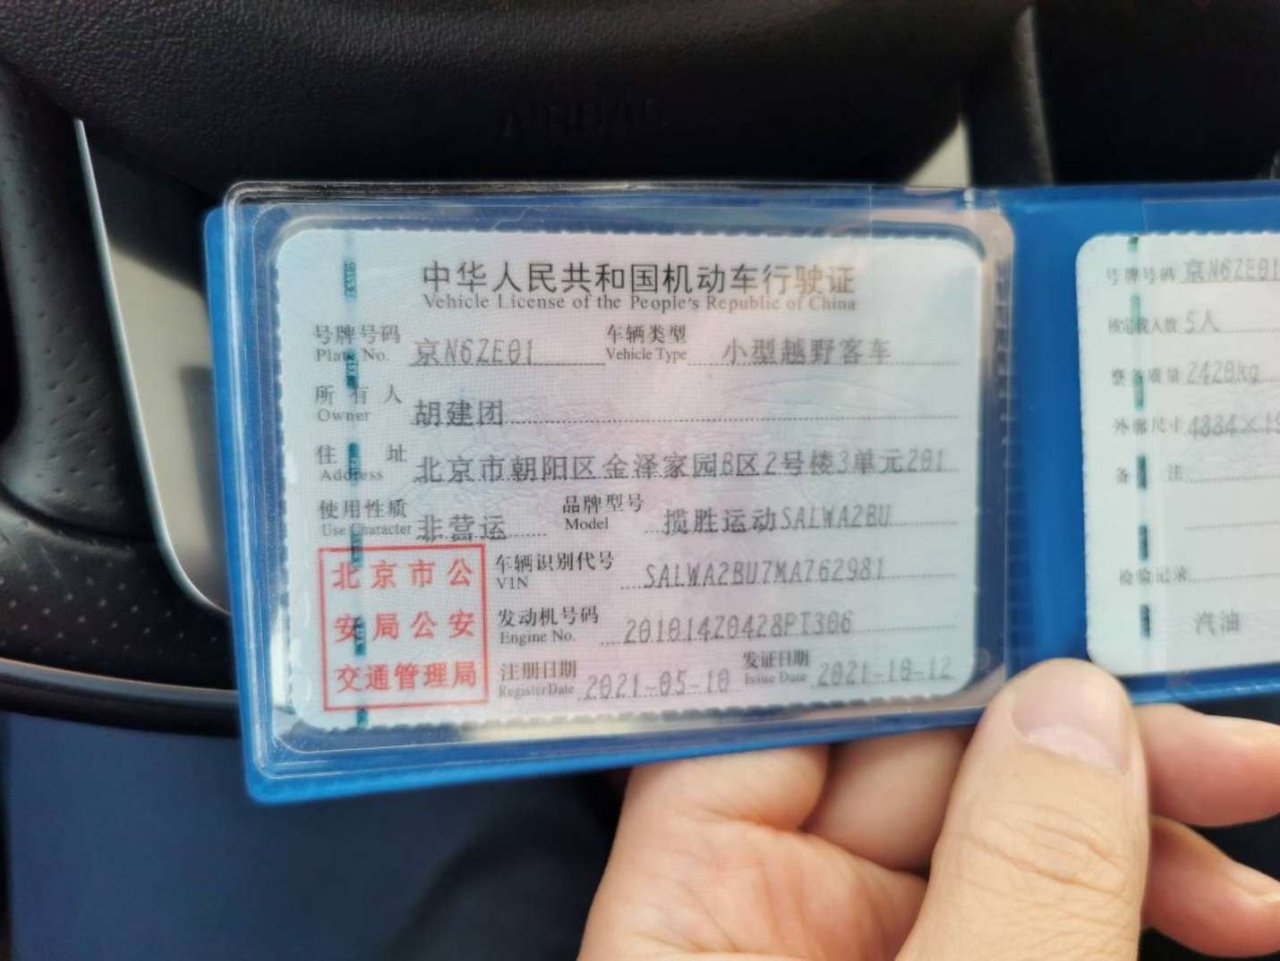 AIRBAG
中华人民共和国机动车行驶证
Vehicle License of the People's Republic of China
号牌号码 Plate No. 京N6ZE01 车辆类型 Vehicle Type 小型越野客车
所有人 Owner 胡建团
住址 Address 北京市朝阳区金泽家园B区2号楼3单元201
使用性质 Use Character 非营运 品牌型号 Model 揽胜运动SALWA2BU
北京市公
安局公安
交通管理局
车辆识别代号 VIN SALWA2BU7MA762981
发动机号码 Engine No. 201014Z0428PT306
注册日期 Register Date 2021-05-10 发证日期 Issue Date 2021-10-12
号牌号码 京N6ZE01
核定载人数 5人
整备质量 2420kg
外廓尺寸 4884×
备注
检验记录
汽油